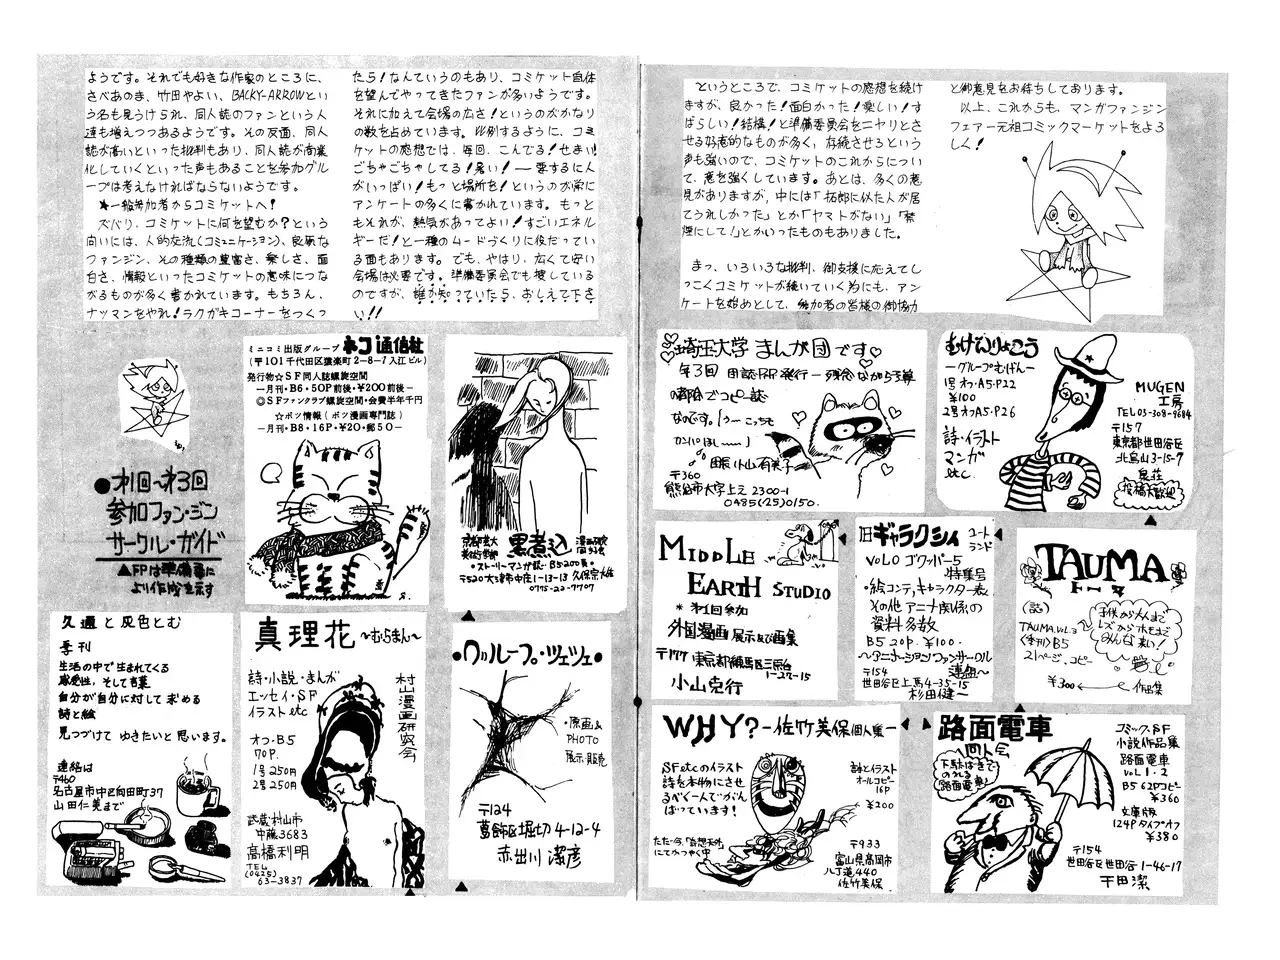 ようです。それでも好きな作家のところに、
さべあのま、竹田やよい、BACKY-ARROWとい
う名も見うけられ、同人誌のファンという人
達も増えつつあるようです。その反面、同人
誌が高いといった批判もあり、同人誌が商業
化していくといった声もあることを参加グル
ープは考えなければならないようです。
★一般参加者からコミケットへ!
ズバリ、コミケットに何を望むか?という
向いには、人的交流(コミュニケーション)、良質な
ファンジン、その種類の豊富さ、楽しさ、面
白さ、情報といったコミケットの意味につな
がるものが多く書かれています。もちろん、
ナッマンをやれ!ラクガキコーナーをつくっ
たら!なんていうのもあり、コミケット自体
を望んでやってきたファンが多いようです。
それに加えて会場の広さ!というのがかなり
の数を占めています。比例するように、コミ
ケットの感想では、毎回、こんでる!せまい!
ごちゃごちゃしてる!暑い!——要するに人
がいっぱい!もっと場所を!というのが常に
アンケートの多くに書かれています。もっと
もそれが、熱気があってよい!すごいエネル
ギーだ!と一種のムードづくりに役だってい
る面もあります。でも、やはり、広くて安い
会場は必要です。準備委員会でも捜している
のですが、誰か知っていたら、おしえて下さ
い!!
というところで、コミケットの感想を続け
ますが、良かった!面白かった!楽しい!す
ばらしい!結構!と準備委員会をニヤリとさ
せる好意的なものが多く、存続させろという
声も強いので、コミケットのこれからについ
て、意を強くしています。あとは、多くの意
見がありますが、中には「拓郎に似た人が居
てうれしかった」とか「ヤマトがない」「禁
煙にして!」とかいったものもありました。
まっ、いろいろな批判、御支援に応えてし
っこくコミケットが続いていく為にも、アン
ケートを始めとして、参加者の皆様の御協力
と御意見をお待ちしております。
以上、これからも、マンガファンジン
フェアー元祖コミックマーケットをよろ
しく!
●才1回〜才3回
参加ファン・ジン
サークル・ガイド
▲FPは準備会に
より作成を示す
ミニコミ出版グループ ネコ通信社
(〒101千代田区猿楽町2-8-7入江ビル)
発行物☆SF同人誌螺旋空間
—月刊・B6・50P前後・¥200前後—
◎SFファンクラブ螺旋空間・会費半年千円
☆ボツ情報(ボツ漫画専門誌)
—月刊・B8・16P・¥20・郵50—
京都芸大
美術学部
黒煮込
漫画研究
同好会
・ストーリーマンガ誌・B5200頁・
〒520大津市中庄1-13-13 久保宗雄
0775-22-7707
埼玉大学 まんが団です
第3回
〒360
熊谷市大字上之2300-1
0485(25)0150
むげんりょこう
—グループむげん—
1号オフ・A5・P22
¥100
2号オフA5・P26
詩・イラスト
マンガ
etc
MUGEN
工房
TEL03-308-9684
〒157
東京都世田谷区
北烏山3-15-7
泉荘
投稿大歓迎
久遠と灰色とむ
季刊
生活の中で生まれてくる
感受性、そして言葉
自分が自分に対して求める
詩と絵
見つづけてゆきたいと思います。
連絡は
〒460
名古屋市中区向田町37
山田仁美まで
真理花〜むらまん〜
詩・小説・まんが
エッセイ・SF
イラストetc
オフ・B5
70P.
1号250円
2号250円
武蔵村山市
中藤3683
高橋利明
TEL
(0425)
63-3837
村山漫画研究会
●グループ・ツェツェ●
・原画&
PHOTO
展示・販売
〒124
葛飾区堀切4-12-4
赤出川潔彦
MIDDLE
EARTH STUDIO
*才1回参加
外国漫画展示及び画集
〒177東京都練馬区三原台
1-22-15
小山克行
旧ギャラクシィ
ユート
ランド
VOL0 ゴワッパー5
特集号
・絵コンテ、キャラクター表
その他アニメ関係の
資料多数
B5 20P. ¥100.
〜アニメーションファンサークル
連組〜
〒154
世田谷区上馬4-35-15
杉田健一
TAUMA
(誌)
TAUMA.VOL.3
(季刊)B5
21ページ、コピー
¥300
子供から大人まで
レズからホモまで
みんな来い!
作品集
WHY?—佐竹美保個人集—
SFetcのイラスト
詩を本物にさせ
るべく一人でがん
ばっています!
詩とイラスト
オールコピー
16P
¥200
〒933
富山県高岡市
八丁道440
佐竹美保
路面電車
同人会
下駄ばきで
のれる
路面電車♪
コミックSF
小説作品集
路面電車
VOL1・2
B5 62Pコピー
¥360
文庫版
124Pタイプオフ
¥380
〒154
世田谷区世田谷1-46-17
干田潔